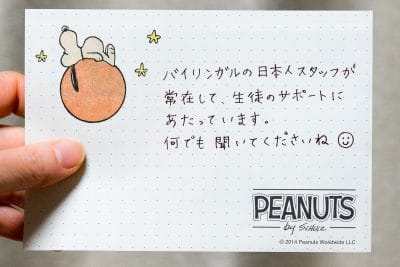 バイリンガルの日本人スタッフが
常在して、生徒のサポートに
あたっています。
何でも聞いてくださいね
PEANUTS
by SCHULZ
© 2014 Peanuts Worldwide LLC